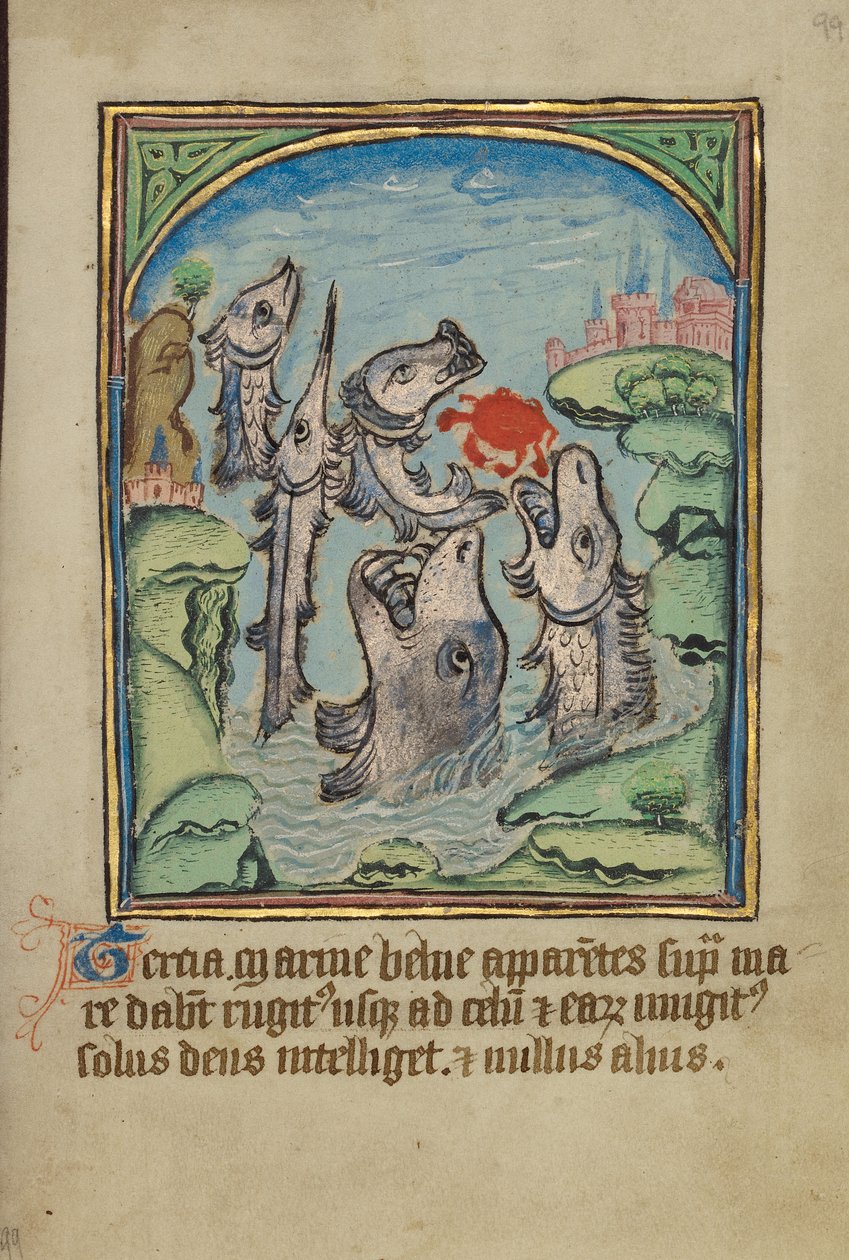 99
Tercia. Marine belue apparẽtes supͣ ma
re dabũt rugitꝰ usqꝫ ad celũ ⁊ eaꝝ mugitꝰ
solus deus intelliget. ⁊ nullus alius.
99